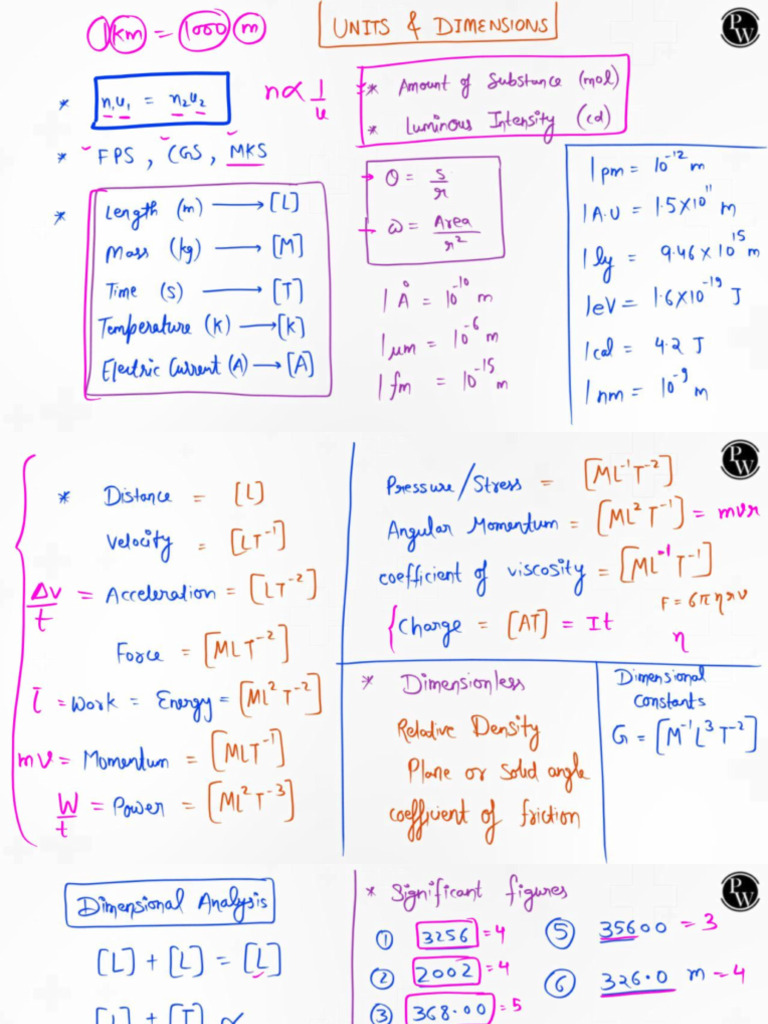 1 km = 1000 m
UNITS & DIMENSIONS
PW
* n₁u₁ = n₂u₂
n ∝ 1/u
* Amount of Substance (mol)
* Luminous Intensity (cd)
* FPS, CGS, MKS
* Length (m) → [L]
Mass (kg) → [M]
Time (s) → [T]
Temperature (K) → [K]
Electric Current (A) → [A]
θ = s/r
ω = Area/r²
1 Å = 10⁻¹⁰ m
1 μm = 10⁻⁶ m
1 fm = 10⁻¹⁵ m
1 pm = 10⁻¹² m
1 A.U = 1.5×10¹¹ m
1 ly = 9.46×10¹⁵ m
1eV = 1.6×10⁻¹⁹ J
1 cal = 4.2 J
1 nm = 10⁻⁹ m
PW
* Distance = [L]
Velocity = [LT⁻¹]
Δv/t = Acceleration = [LT⁻²]
Force = [MLT⁻²]
τ = Work = Energy = [ML²T⁻²]
mv = Momentum = [MLT⁻¹]
W/t = Power = [ML²T⁻³]
Pressure/Stress = [ML⁻¹T⁻²]
Angular Momentum = [ML²T⁻¹] = mvr
coefficient of viscosity = [ML⁻¹T⁻¹]
F = 6πηrv
Charge = [AT] = It
η
* Dimensionless
Relative Density
Plane or Solid angle
coefficient of friction
Dimensional
Constants
G = [M⁻¹L³T⁻²]
PW
Dimensional Analysis
[L] + [L] = [L]
* Significant figures
① 3256 = 4
② 2002 = 4
③ 368.00 = 5
⑤ 35600 = 3
⑥ 326.0 m = 4